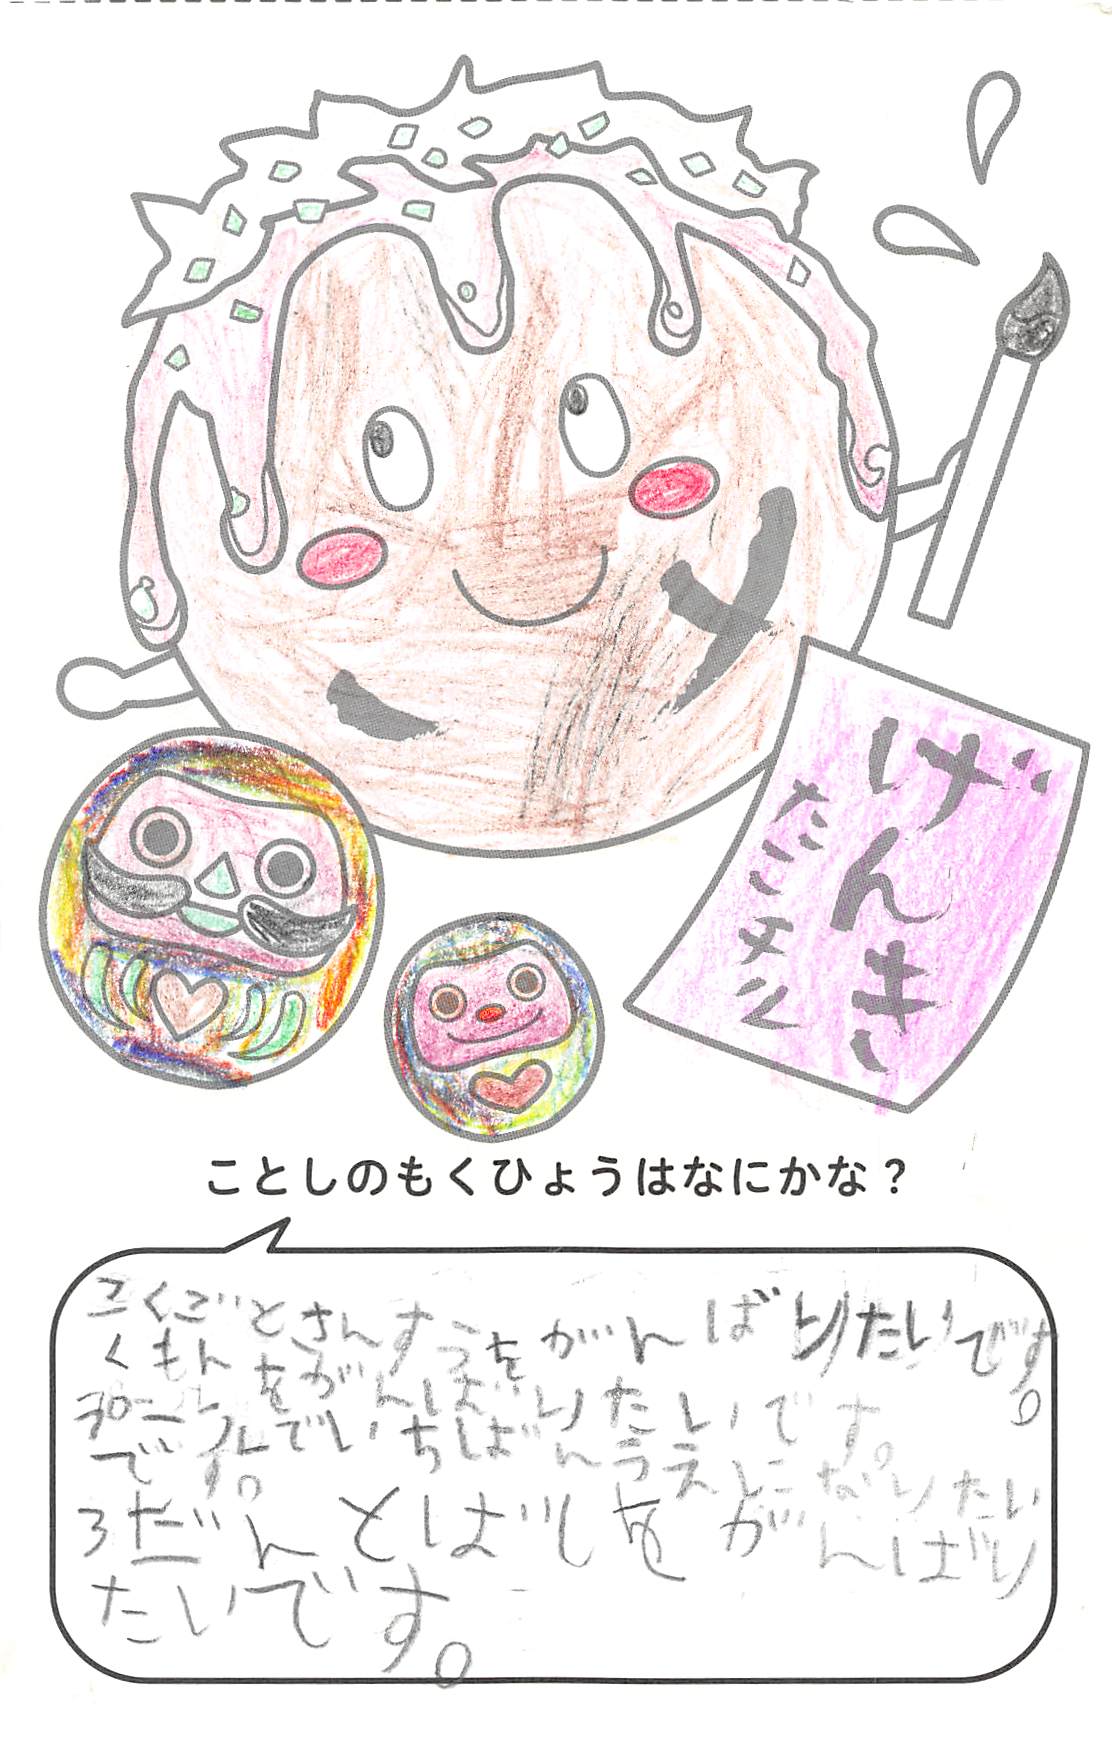 げんき
たこチル
ことしのもくひょうはなにかな？
こくごとさんすうをがんばりたいです。
くもんをがんばりたいです。
プールでいちばんうえになりたい
です。
3だんとばしをがんばり
たいです。